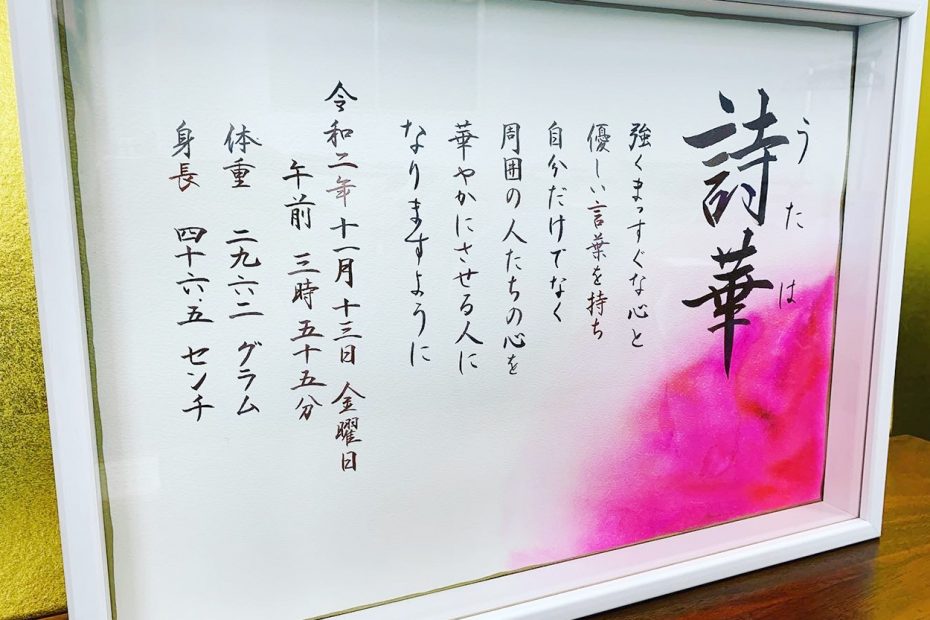 詩華
うたは
強くまっすぐな心と
優しい言葉を持ち
自分だけでなく
周囲の人たちの心を
華やかにさせる人に
なりますように
令和二年十一月十三日 金曜日
午前 三時五十五分
体重 二九六二グラム
身長 四十六.五 センチ